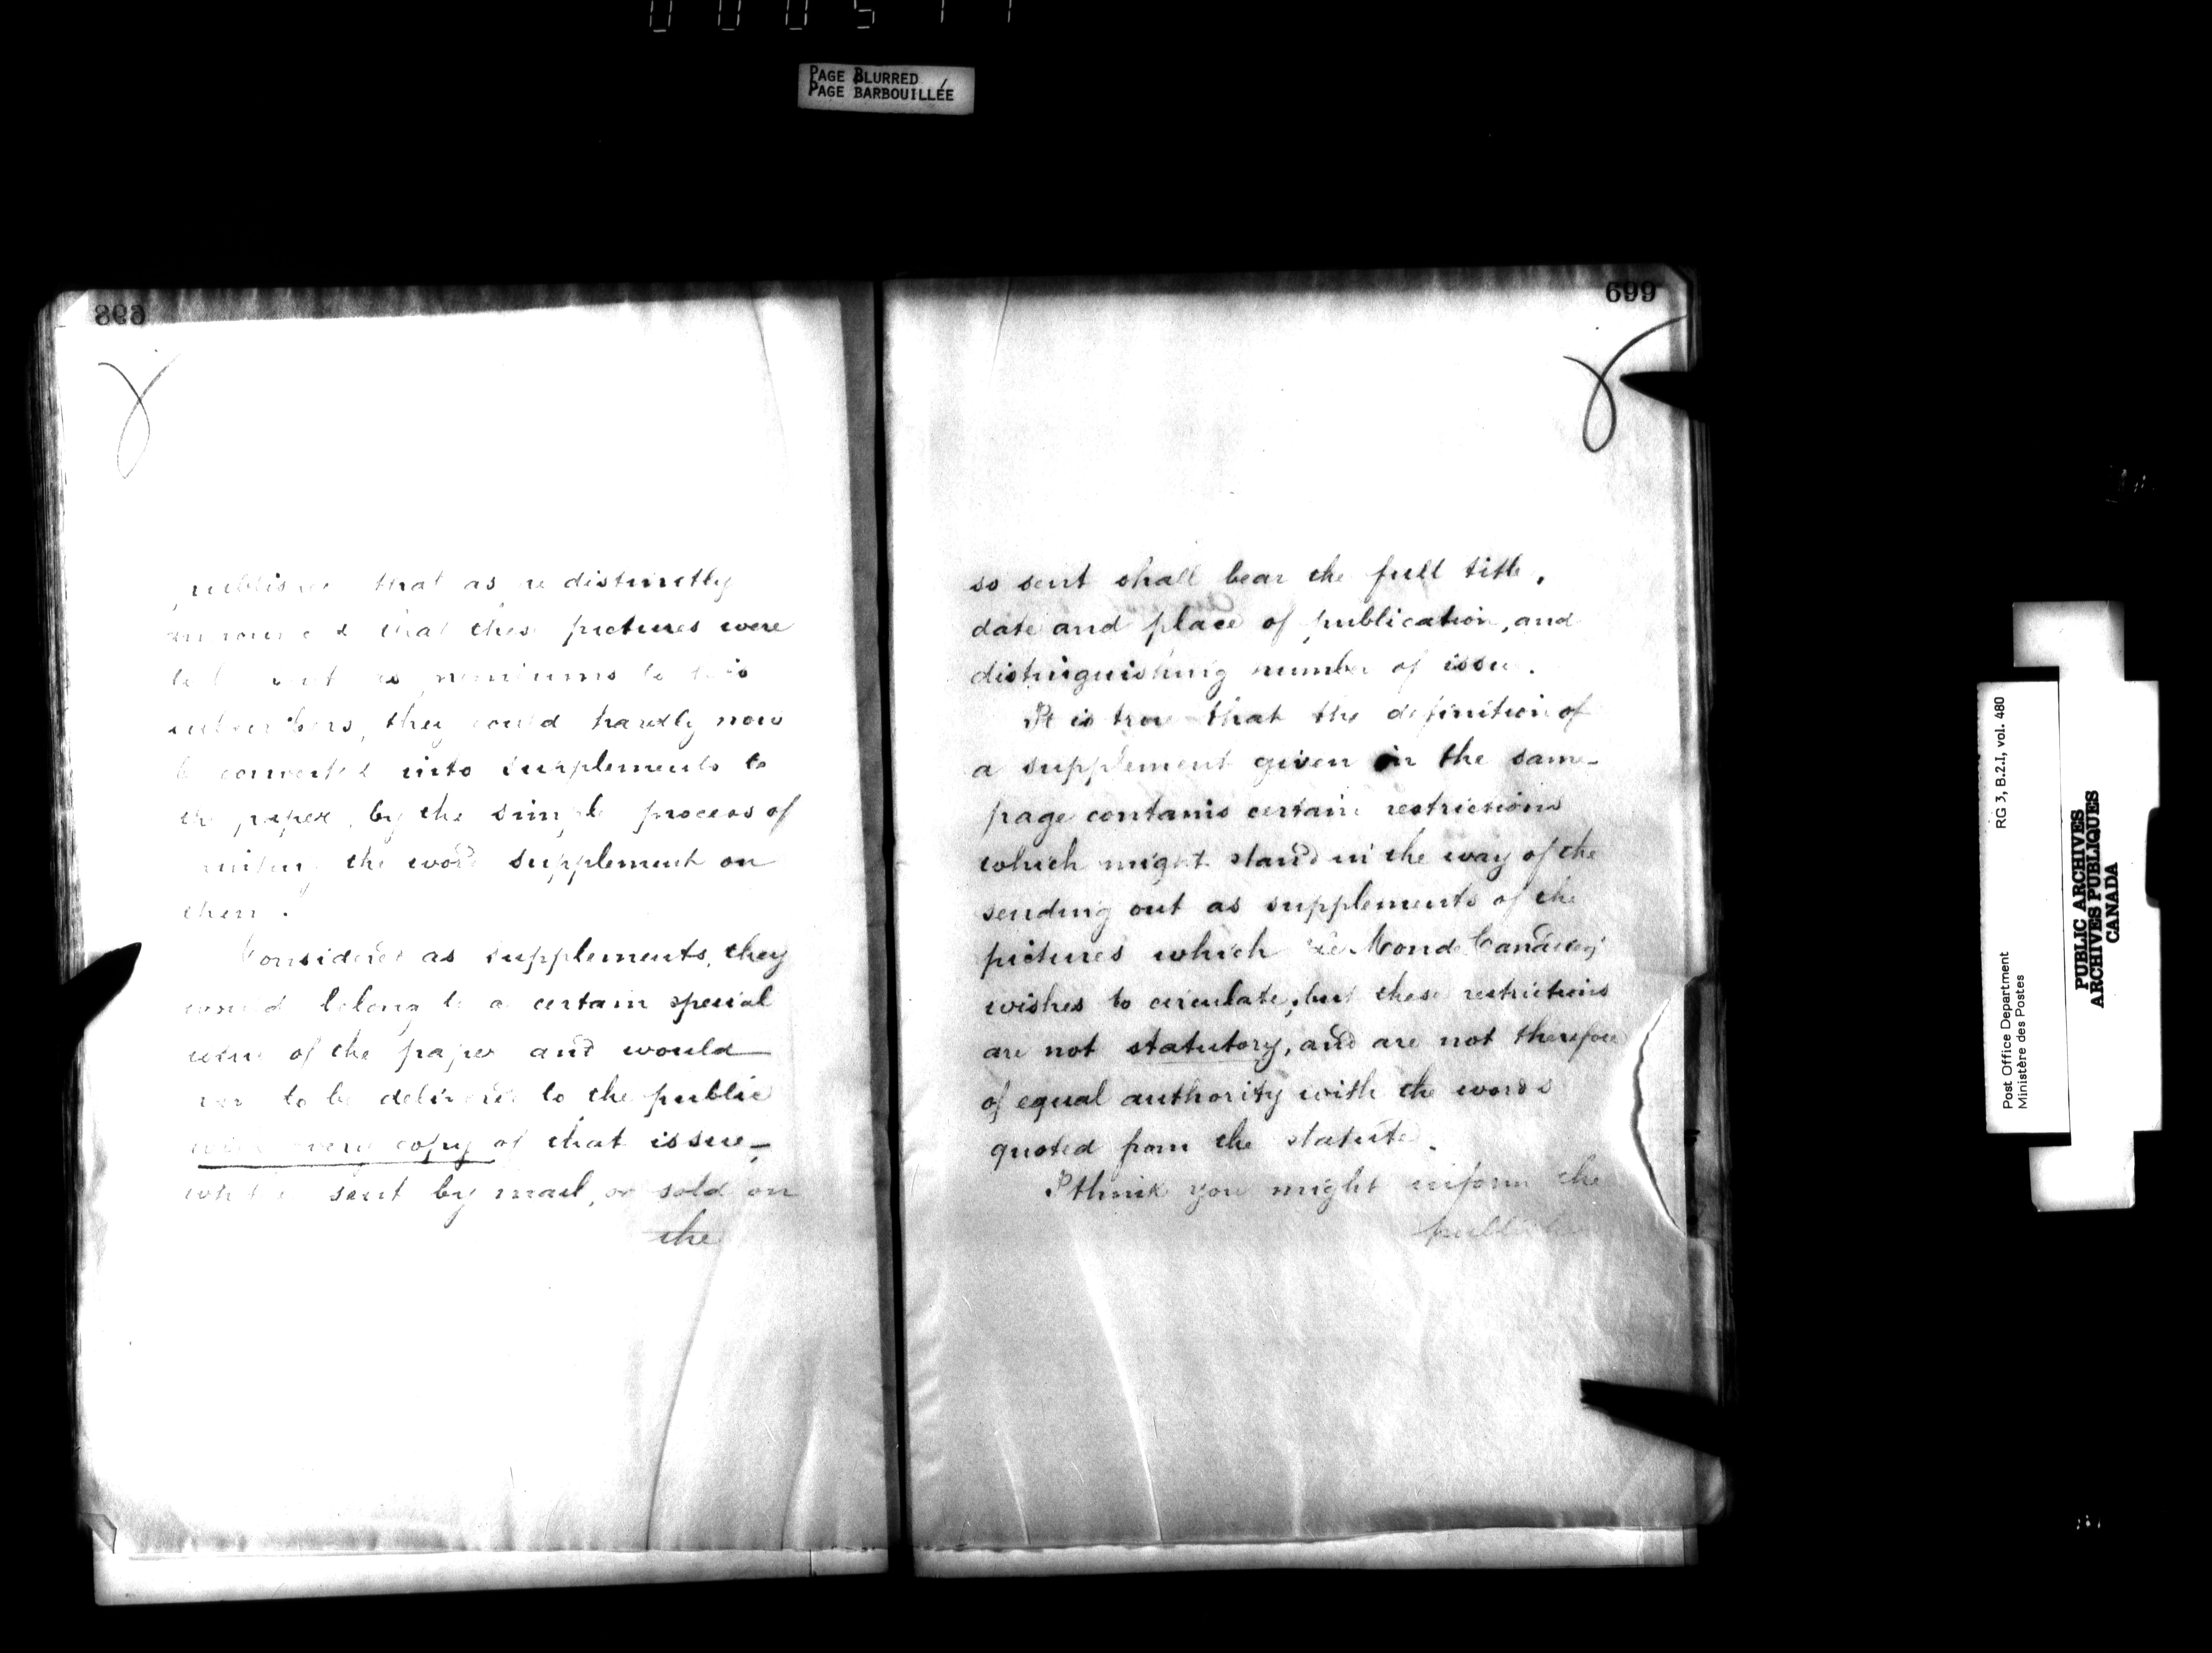 PAGE BLURRED
PAGE BARBOUILLÉE
698
that as distinctly
that these pictures were
they could hardly now
into supplements to
paper, by the simple process of
the word supplement on
them.
Considered as supplements, they
would belong to a certain special
of the paper and would
to be delivered to the public
every copy of that issue,
sent by mail, or sold on
the
699
so sent shall bear the full title,
date and place of publication, and
distinguishing number of issue.
It is true that the definition of
a supplement given in the same
page contains certain restrictions
which might stand in the way of the
sending out as supplements of the
pictures which Le Monde Canadien
wishes to circulate, but these restrictions
are not statutory, and are not therefore
of equal authority with the words
quoted from the statute.
I think you might inform the
Post Office Department
Ministère des Postes
RG 3, B.2.I, vol. 480
PUBLIC ARCHIVES
ARCHIVES PUBLIQUES
CANADA